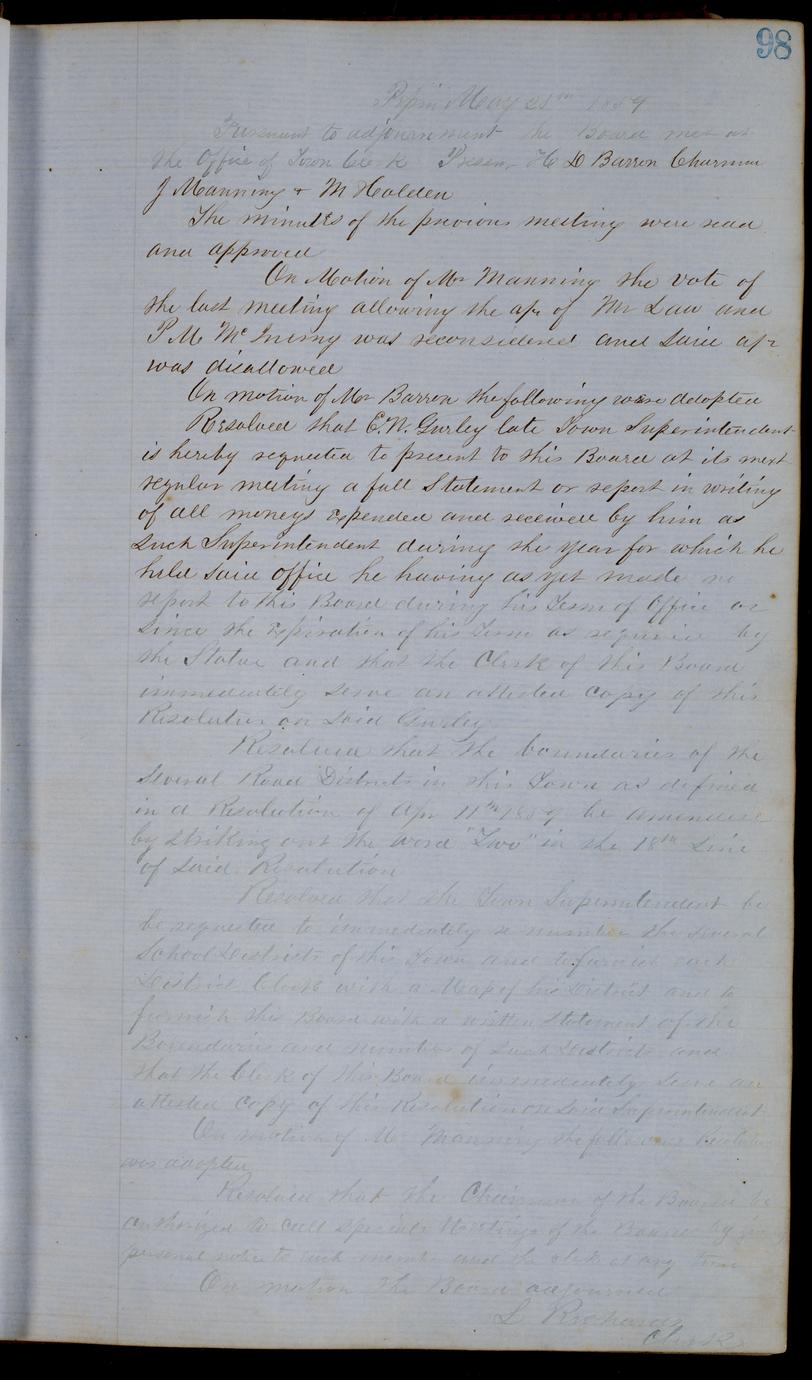 98
Pepin May 21th 1859
Pursuant to adjournment the Board met at
the Office of Town Clerk Present H D Barron Charman
J Manning & M Holden
The minutes of the previous meeting were read
and approved
On Motion of Mr Manning the vote of
the last meeting allowing the a/c of Mr Law and
P M Mc was reconsidered and Said a/c
was disallowed
On motion of Mr Barron the following were adopted
Resolved that E. N. Gurley late Town Superintendent
is hereby requested to present to this Board at its next
regular meeting a full Statement or report in writing
of all moneys Expended and received by him as
Such Superintendent during the year for which he
held Said office he having as yet made no
report to this Board during his Term of Office or
Since the Expiration of his Term as required by
the Statue and that the Clerk of this Board
immediately Serve an attested copy of this
Resolution on Said Gurley
Resolved that the boundaries of the
Several Road Districts in this Town as defined
in a Resolution of Apr 11th 1859 be amended
by Striking out the word "Two" in the 18th Line
of Said Resolution
Resolved that the Town Superintendent be
be requested to immediately re number the Several
School Districts of this Town and to furnish each
District Clerk with a Map of his District and to
furnish this Board with a written Statement of the
Boundaries and number of Such Districts and
that the Clerk of this Board immediately Serve an
attested Copy of this Resolution on Said Superintendent
On motion of Mr Manning the following Resolution
was adopted
Resolved that the Chairman of the Board be
authorized to call Special Meetings of the Board by
personal notice to each member and the clerk at any time
On motion the Board adjourned
L Richards
Clerk